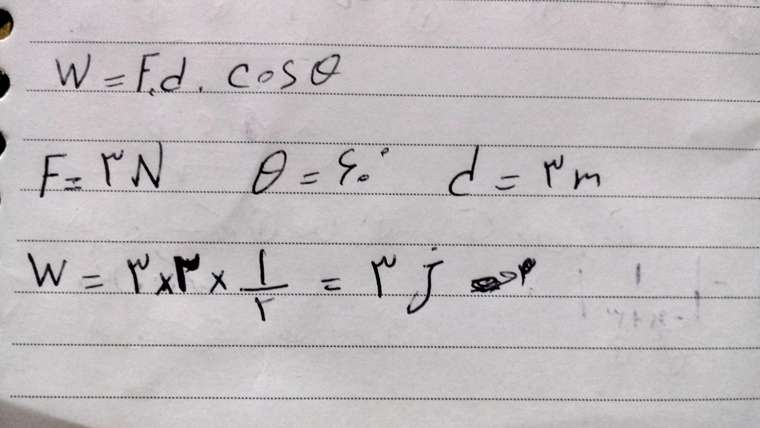 W = F.d . cosθ
F = ۳N θ = ۶۰° d = ۳m
W = ۳ × ۳ × ۱/۲ = ۳ j